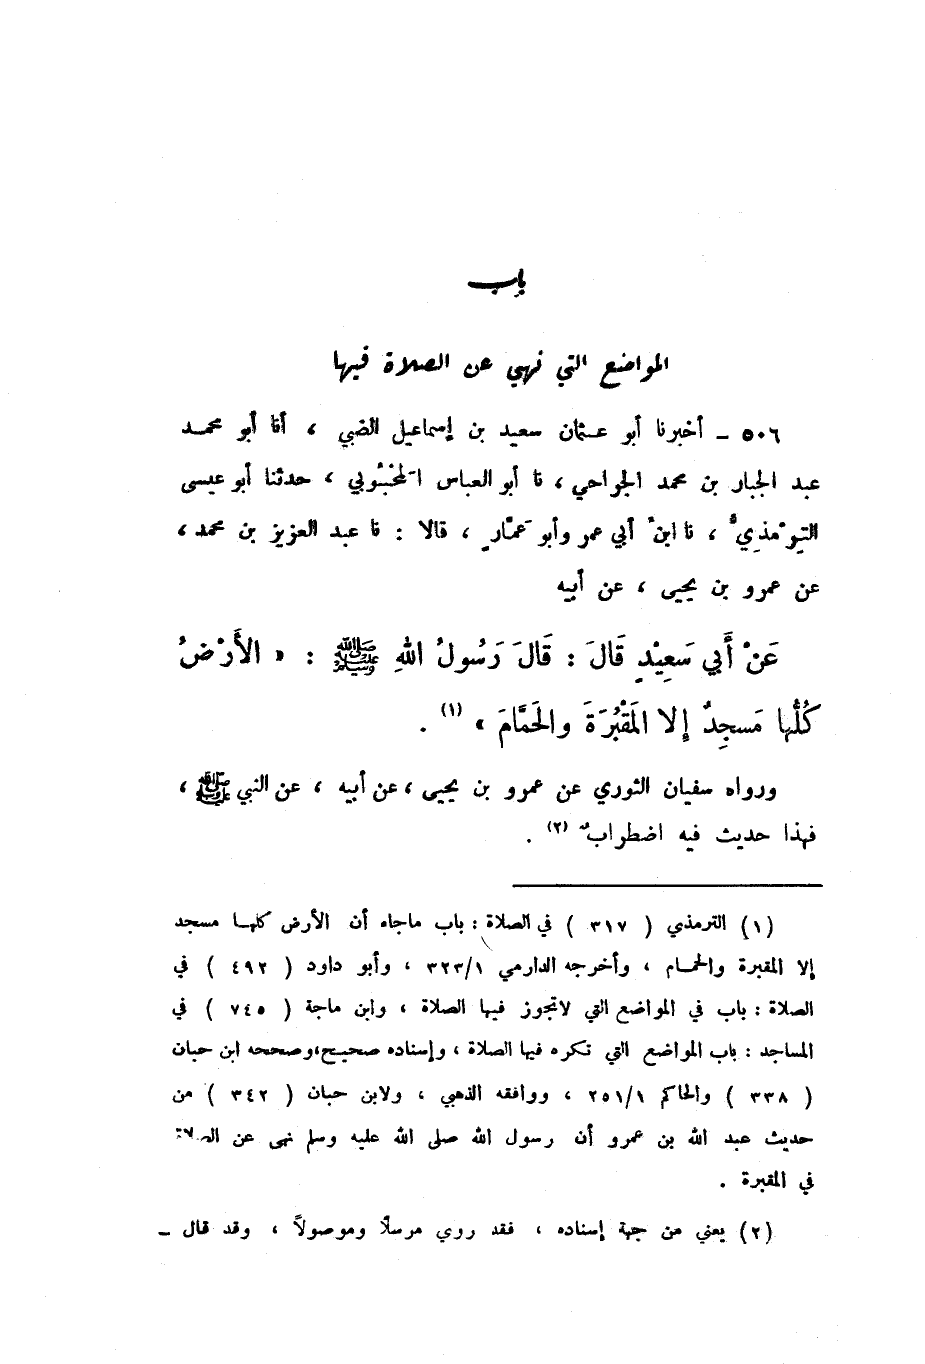 باب
المواضع التي نهي عن الصلاة فيها
٥٠٦ - أخبرنا أبو عثمان سعيد بن إسماعيل الضبي ، أنا أبو محمد
عبد الجبار بن محمد الجراحي ، نا أبو العباس المَحْبُوبي ، حدثنا أبو عيسى
التِرْمذِيُّ ، نا ابنُ أبي عمر وأبو عَمَّارٍ ، قالا : نا عبد العزيز بن محمد ،
عن عمرو بن يحيى ، عن أبيه
عَنْ أَبي سَعِيْدٍ قَالَ : قَالَ رَسُولُ اللهِ ﷺ : « الأَرْضُ
كُلُّها مَسجِدٌ إلا المَقْبُرَةَ والحَمَّامَ » (١) .
ورواه سفيان الثوري عن عمرو بن يحيى ، عن أبيه ، عن النبي ﷺ ،
فهذا حديث فيه اضطرابٌ (٢) .
(١) الترمذي ( ٣١٧ ) في الصلاة : باب ماجاء أن الأرض كلهـا مسجد
إلا المقبرة والحمـام ، وأخرجه الدارمي ٣٢٣/١ ، وأبو داود ( ٤٩٢ ) في
الصلاة : باب في المواضع التي لاتجوز فيها الصلاة ، وابن ماجة ( ٧٤٥ ) في
المساجد : باب المواضع التي تكره فيها الصلاة ، وإسناده صحيح،وصححه ابن حبان
( ٣٣٨ ) والحاكم ٢٥١/١ ، ووافقه الذهبي ، ولابن حبان ( ٣٤٢ ) من
حديث عبد الله بن عمرو أن رسول الله صلى الله عليه وسلم نهى عن الصلاة
في المقبرة .
(٢) يعني من جهة إسناده ، فقد روي مرسلاً وموصولاً ، وقد قال -